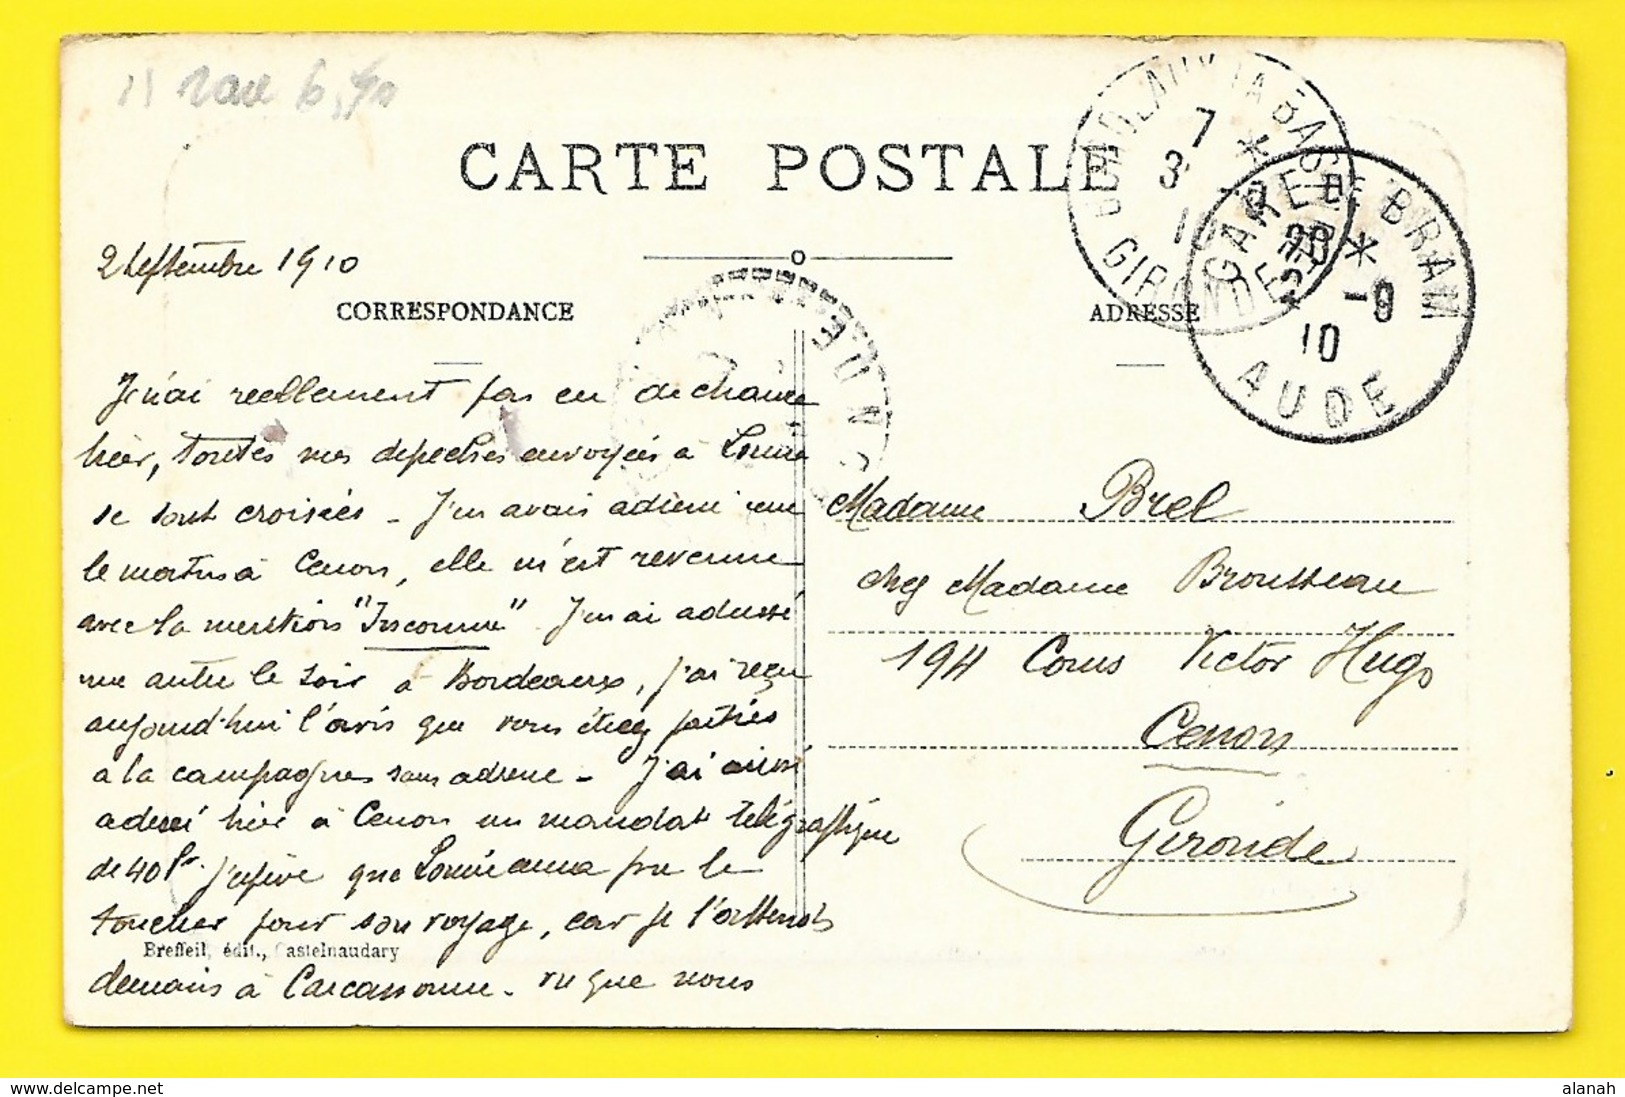 11 Rare 6,40
CARTE POSTALE
BORDEAUX LA BASTIDE
7
3
10
GIRONDE
GARE DE BRAM
20 *
-9
10
AUDE
2 Septembre 1910
CORRESPONDANCE
ADRESSE
Je n'ai reellement pas eu de chance
hier, toutes mes depeches envoyées à Louise
se sont croisées - J'en avais adressé une
le matin à Cenon, elle m'est revenue
avec la mention "Inconnue" J'en ai adressé
une autre le soir à Bordeaux, j'ai reçu
aujourd'hui l'avis que vous étiez parties
à la campagne sans adresse - J'ai aussi
adressé hier à Cenon un mandat télégraphique
de 40 fr. J'espère que Louise aura pu le
toucher pour son voyage, car je l'attends
Breffeil, édit., Castelnaudary
demain à Carcassonne - vu que nous
Madame Brel
chez Madame Brousseau
194 Cours Victor Hugo
Cenon
Gironde
alanah